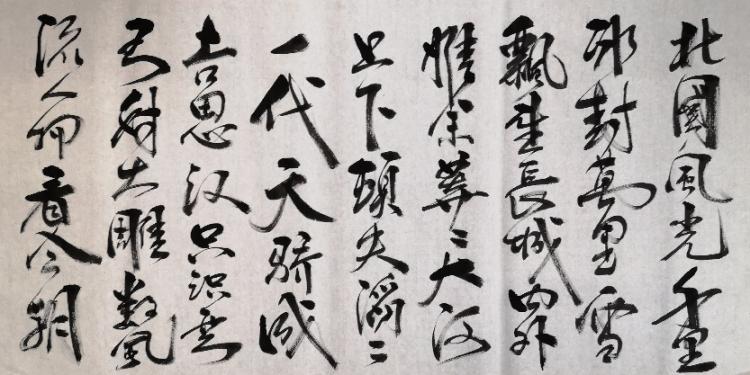 北國風光千里
冰封萬里雪
飄望長城内外
惟余莽〻大河
上下頓失滔〻
一代天驕成
吉思汗只识弯
弓射大雕数風
流人物看今朝